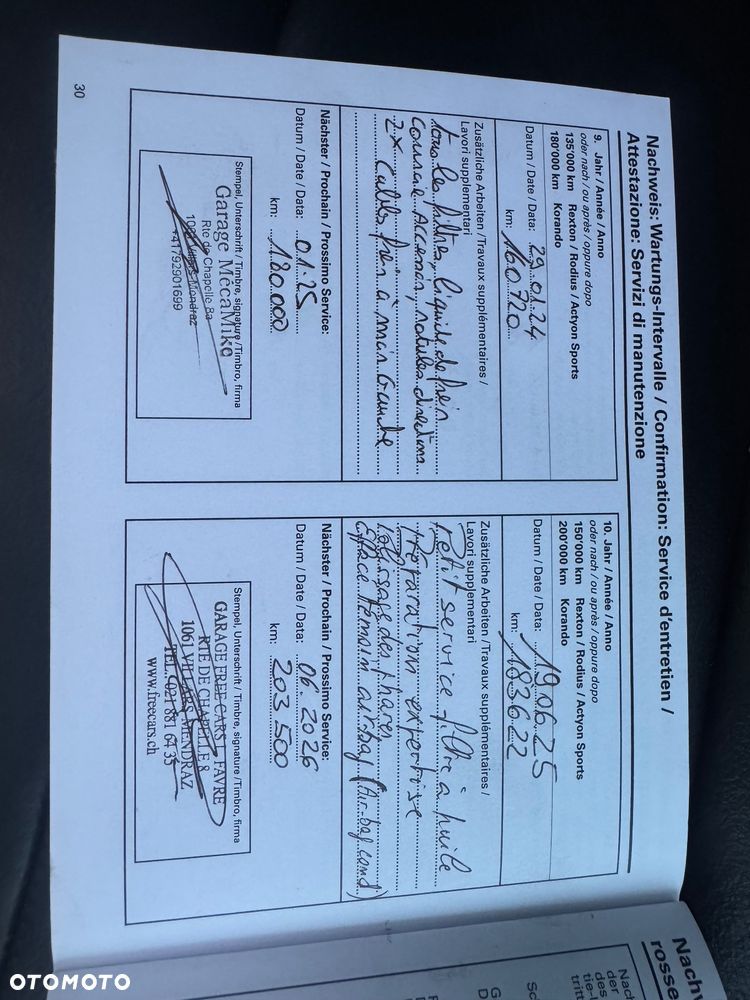 Nachweis: Wartungs-Intervalle / Confirmation: Service d'entretien /
Attestazione: Servizi di manutenzione
9. Jahr / Année / Anno
oder nach / ou après / oppure dopo
135'000 km Rexton / Rodius / Actyon Sports
180'000 km Korando
Datum / Date / Data: 29.01.24
km: 160720
Zusätzliche Arbeiten / Travaux supplémentaires /
Lavori supplementari
tous les filtres, liquide de frein
Courroie Accessoires, rotules directions
2x Cables frein à main Gauche
Nächster / Prochain / Prossimo Service:
Datum / Date / Data: 01.25
km: 180000
Stempel, Unterschrift / Timbre, signature / Timbro, firma
Garage MécaMike
Rte de Chapelle 8a
+41792901699
10. Jahr / Année / Anno
oder nach / ou après / oppure dopo
150'000 km Rexton / Rodius / Actyon Sports
200'000 km Korando
Datum / Date / Data: 19.06.25
km: 183622
Zusätzliche Arbeiten / Travaux supplémentaires /
Lavori supplementari
Petit service filtre à huile
Préparation expertise
Polissage des phares
Efface témoin airbag (Air-bag cond)
Nächster / Prochain / Prossimo Service:
Datum / Date / Data: 06.2026
km: 203500
Stempel, Unterschrift / Timbre, signature / Timbro, firma
GARAGE FREE CARS FAVRE
RTE DE CHAPELLE 8
1061 VILLARS-MENDRAZ
TEL. 021 881 64 35
www.freecars.ch
30
Nach
rosse
OTOMOTO